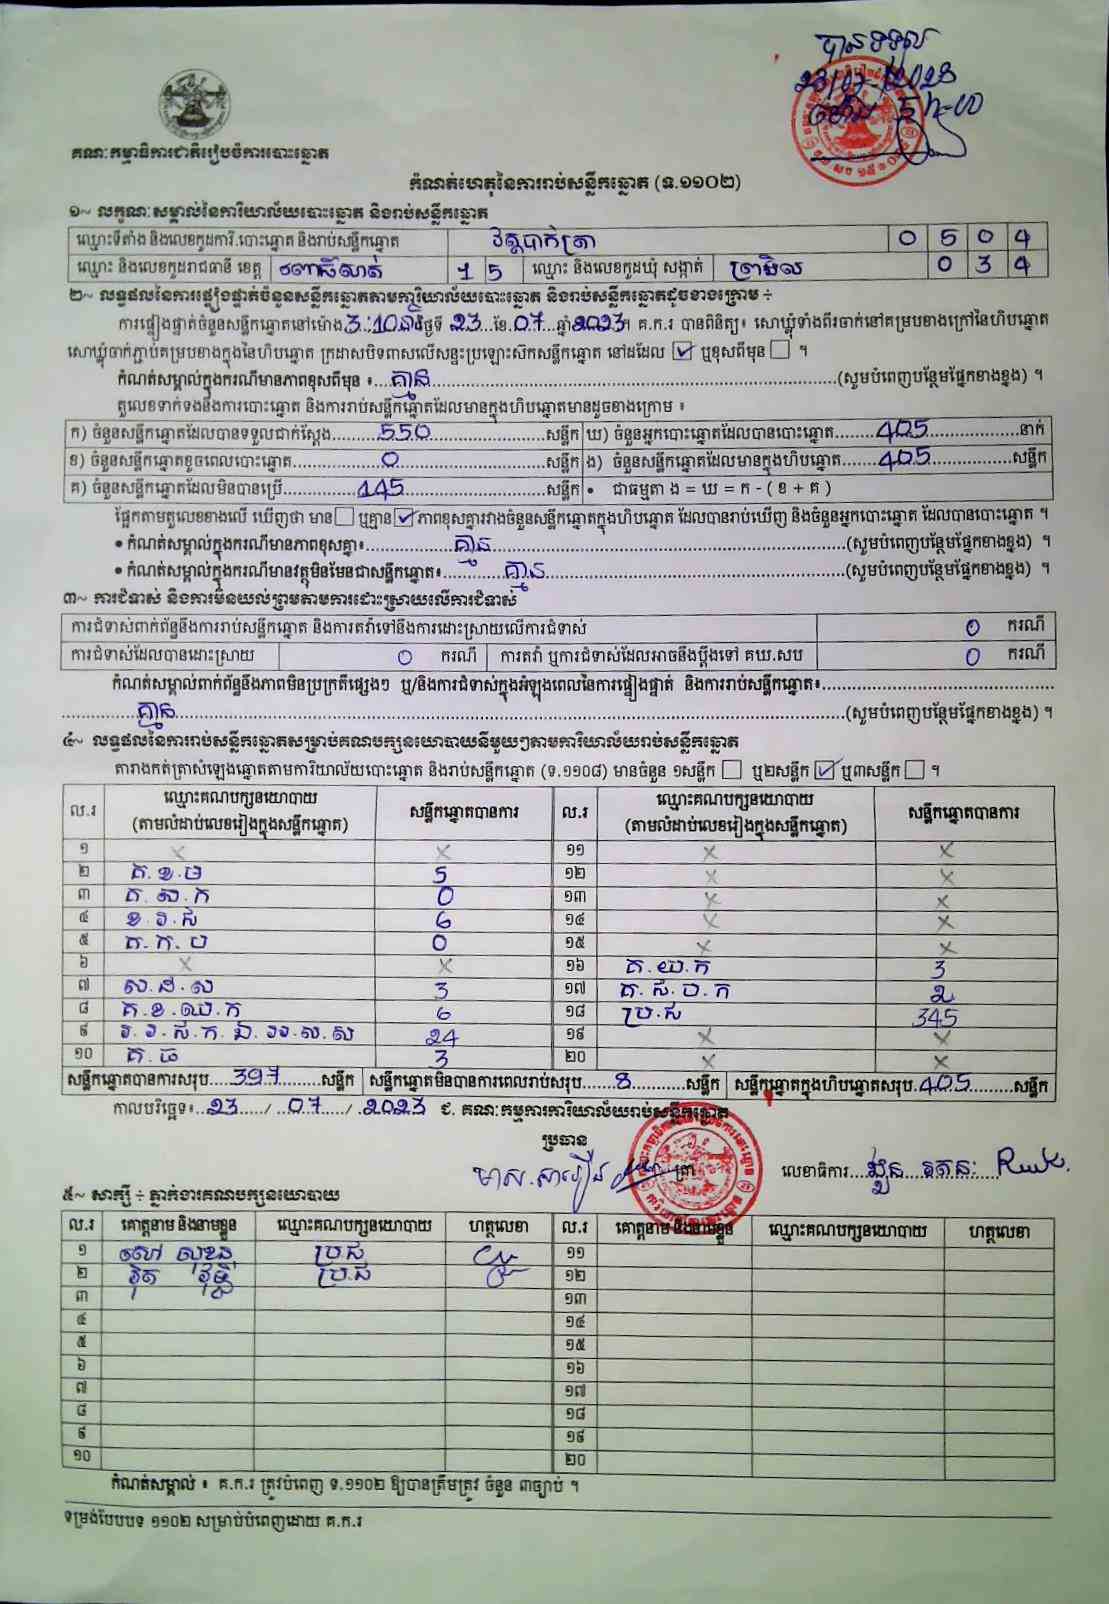 បានទទួល
23/07/2023
គណៈកម្មាធិការជាតិរៀបចំការបោះឆ្នោត
កំណត់ហេតុនៃការរាប់សន្លឹកឆ្នោត (ទ.១១០២)
១~ លក្ខណៈសម្គាល់នៃការិយាល័យបោះឆ្នោត និងរាប់សន្លឹកឆ្នោត
ឈ្មោះទីតាំង និងលេខកូដការិ.បោះឆ្នោត និងរាប់សន្លឹកឆ្នោត វត្តបាក់ត្រា 0 5 0 4
ឈ្មោះ និងលេខកូដរាជធានី ខេត្ត ពោធិ៍សាត់ 1 5 ឈ្មោះ និងលេខកូដឃុំ សង្កាត់ ព្រាមិល 0 3 4
២~ លទ្ធផលនៃការផ្ទៀងផ្ទាត់ចំនួនសន្លឹកឆ្នោតតាមការិយាល័យបោះឆ្នោត និងរាប់សន្លឹកឆ្នោតដូចខាងក្រោម ÷
ការផ្ទៀងផ្ទាត់ចំនួនសន្លឹកឆ្នោតនៅម៉ោង 3:10 នាទី ថ្ងៃទី 23 ខែ 07 ឆ្នាំ 2023 ។ គ.ក.រ បានពិនិត្យ៖ សោឃ្លុំទាំងពីរចាក់នៅគម្របខាងក្រៅនៃហិបឆ្នោត
សោឃ្លុំចាក់ភ្ជាប់គម្របខាងក្នុងនៃហិបឆ្នោត ក្រដាសបិទពាសលើសន្ទះប្រឡោះស៊កសន្លឹកឆ្នោត នៅដដែល ☑ ឬខុសពីមុន ☐ ។
កំណត់សម្គាល់ក្នុងករណីមានភាពខុសពីមុន ៖ គ្មាន (សូមបំពេញបន្ថែមផ្នែកខាងខ្នង) ។
តួលេខទាក់ទងនឹងការបោះឆ្នោត និងការរាប់សន្លឹកឆ្នោតដែលមានក្នុងហិបឆ្នោតមានដូចខាងក្រោម ៖
ក) ចំនួនសន្លឹកឆ្នោតដែលបានទទួលជាក់ស្តែង 550 សន្លឹក ឃ) ចំនួនអ្នកបោះឆ្នោតដែលបានបោះឆ្នោត 405 នាក់
ខ) ចំនួនសន្លឹកឆ្នោតខូចពេលបោះឆ្នោត 0 សន្លឹក ង) ចំនួនសន្លឹកឆ្នោតដែលមានក្នុងហិបឆ្នោត 405 សន្លឹក
គ) ចំនួនសន្លឹកឆ្នោតដែលមិនបានប្រើ 145 សន្លឹក • ជាធម្មតា ង = ឃ = ក - ( ខ + គ )
ផ្អែកតាមតួលេខខាងលើ ឃើញថា មាន ☐ ឬគ្មាន ☑ ភាពខុសគ្នារវាងចំនួនសន្លឹកឆ្នោតក្នុងហិបឆ្នោត ដែលបានរាប់ឃើញ និងចំនួនអ្នកបោះឆ្នោត ដែលបានបោះឆ្នោត ។
• កំណត់សម្គាល់ក្នុងករណីមានភាពខុសគ្នា៖ គ្មាន (សូមបំពេញបន្ថែមផ្នែកខាងខ្នង) ។
• កំណត់សម្គាល់ក្នុងករណីមានវត្ថុមិនមែនជាសន្លឹកឆ្នោត៖ គ្មាន (សូមបំពេញបន្ថែមផ្នែកខាងខ្នង) ។
៣~ ការជំទាស់ និងការមិនយល់ព្រមតាមការដោះស្រាយលើការជំទាស់
ការជំទាស់ពាក់ព័ន្ធនឹងការរាប់សន្លឹកឆ្នោត និងការតវ៉ាទៅនឹងការដោះស្រាយលើការជំទាស់ 0 ករណី
ការជំទាស់ដែលបានដោះស្រាយ 0 ករណី ការតវ៉ា ឬការជំទាស់ដែលអាចនឹងប្តឹងទៅ គឃ.សប 0 ករណី
កំណត់សម្គាល់ពាក់ព័ន្ធនឹងភាពមិនប្រក្រតីផ្សេងៗ ឬ/និងការជំទាស់ក្នុងអំឡុងពេលនៃការផ្ទៀងផ្ទាត់ និងការរាប់សន្លឹកឆ្នោត៖
គ្មាន (សូមបំពេញបន្ថែមផ្នែកខាងខ្នង) ។
៤~ លទ្ធផលនៃការរាប់សន្លឹកឆ្នោតសម្រាប់គណបក្សនយោបាយនីមួយៗតាមការិយាល័យរាប់សន្លឹកឆ្នោត
តារាងកត់ត្រាសំឡេងឆ្នោតតាមការិយាល័យបោះឆ្នោត និងរាប់សន្លឹកឆ្នោត (ទ.១១០៨) មានចំនួន ១សន្លឹក ☐ ឬ២សន្លឹក ☑ ឬ៣សន្លឹក ☐ ។
ល.រ ឈ្មោះគណបក្សនយោបាយ (តាមលំដាប់លេខរៀងក្នុងសន្លឹកឆ្នោត) សន្លឹកឆ្នោតបានការ ល.រ ឈ្មោះគណបក្សនយោបាយ (តាមលំដាប់លេខរៀងក្នុងសន្លឹកឆ្នោត) សន្លឹកឆ្នោតបានការ
១ × × ១១ × ×
២ គ.ខ.ម 5 ១២ × ×
៣ គ.ស.ក 0 ១៣ × ×
៤ ខ.រ.ជ 6 ១៤ × ×
៥ គ.ក.ប 0 ១៥ × ×
៦ × × ១៦ គ.យ.ក 3
៧ ស.ជ.ល 3 ១៧ គ.ជ.ប.ក 2
៨ គ.ខ.ឈ.ក 6 ១៨ ប្រ.ជ 345
៩ រ.រ.ជ.ក.ឯ.អ.ល.ស 24 ១៩ × ×
១០ គ.ធ 3 ២០ × ×
សន្លឹកឆ្នោតបានការសរុប 397 សន្លឹក សន្លឹកឆ្នោតមិនបានការពេលរាប់សរុប 8 សន្លឹក សន្លឹកឆ្នោតក្នុងហិបឆ្នោតសរុប 405 សន្លឹក
កាលបរិច្ឆេទ៖ 23 / 07 / 2023 ជ. គណៈកម្មការការិយាល័យរាប់សន្លឹកឆ្នោត
ប្រធាន
មាស.សារឿន ត្រា លេខាធិការ
៥~ សាក្សី ÷ ភ្នាក់ងារគណបក្សនយោបាយ
ល.រ គោត្តនាម និងនាមខ្លួន ឈ្មោះគណបក្សនយោបាយ ហត្ថលេខា ល.រ គោត្តនាម និងនាមខ្លួន ឈ្មោះគណបក្សនយោបាយ ហត្ថលេខា
១ ប្រ.ជ ១១
២ ប្រ.ជ ១២
៣ ១៣
៤ ១៤
៥ ១៥
៦ ១៦
៧ ១៧
៨ ១៨
៩ ១៩
១០ ២០
កំណត់សម្គាល់ ៖ គ.ក.រ ត្រូវបំពេញ ទ.១១០២ ឱ្យបានត្រឹមត្រូវ ចំនួន ៣ច្បាប់ ។
ទម្រង់បែបបទ ១១០២ សម្រាប់បំពេញដោយ គ.ក.រ